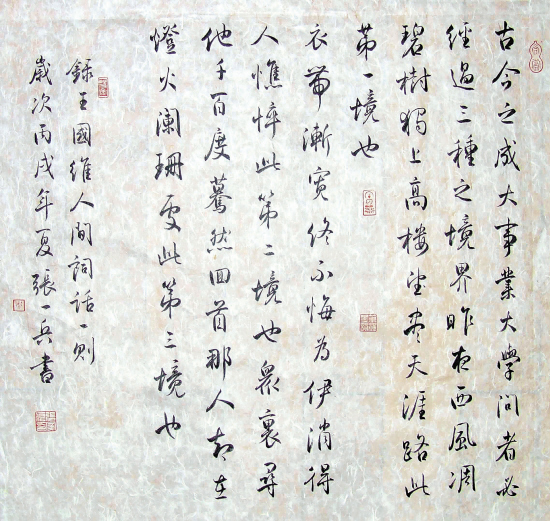 古今之成大事業大學问者必
經過三種之境界昨夜西風凋
碧樹獨上高樓望尽天涯路此
第一境也
衣帶漸寬终不悔為伊消得
人憔悴此第二境也眾裏尋
他千百度驀然回首那人却在
燈火阑珊處此第三境也
錄王國維人間詞話一則
歲次丙戌年夏張一兵書